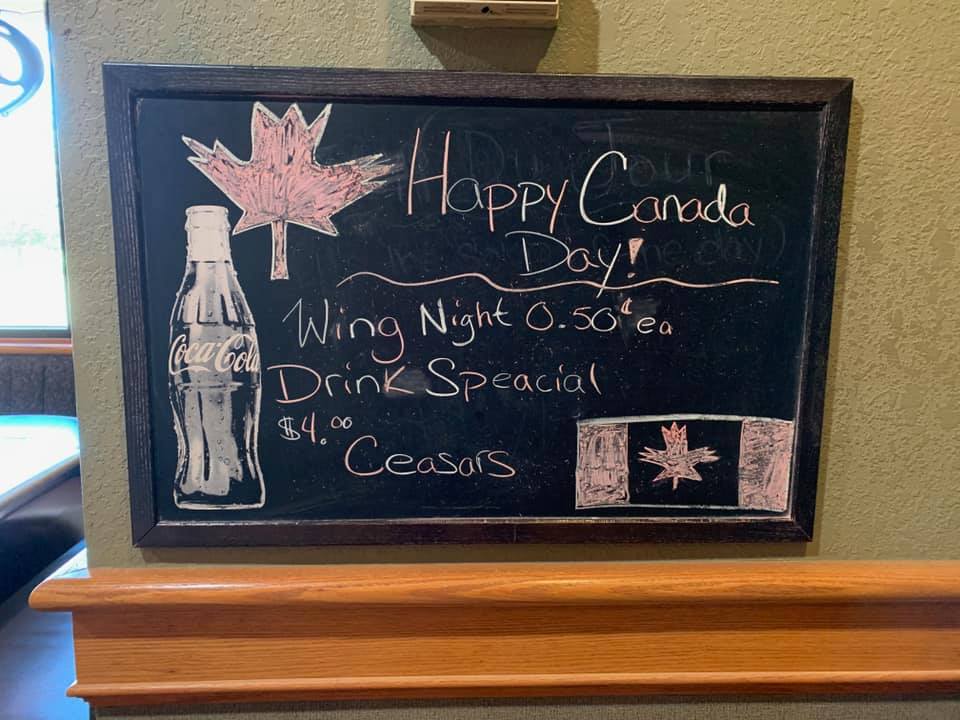 Happy Canada
Day!
Coca-Cola
Wing Night 0.50¢ ea
Drink Speacial
$4.00
Ceasars